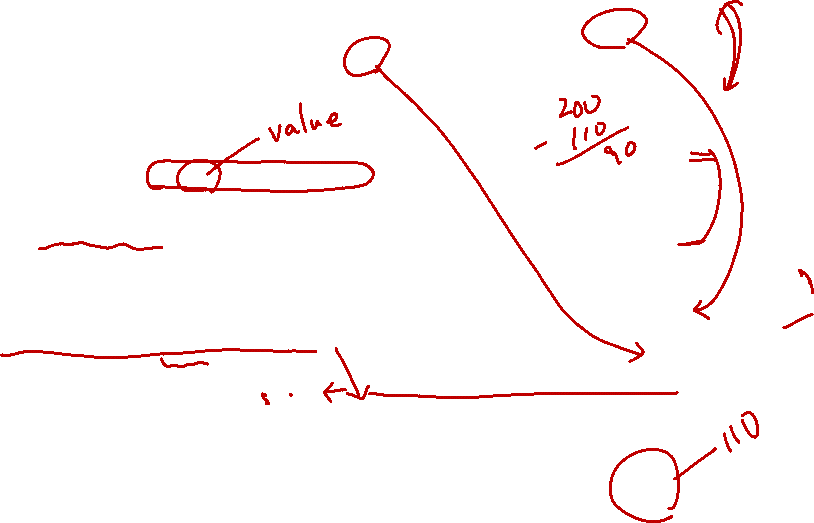 value
200
- 110
90
110